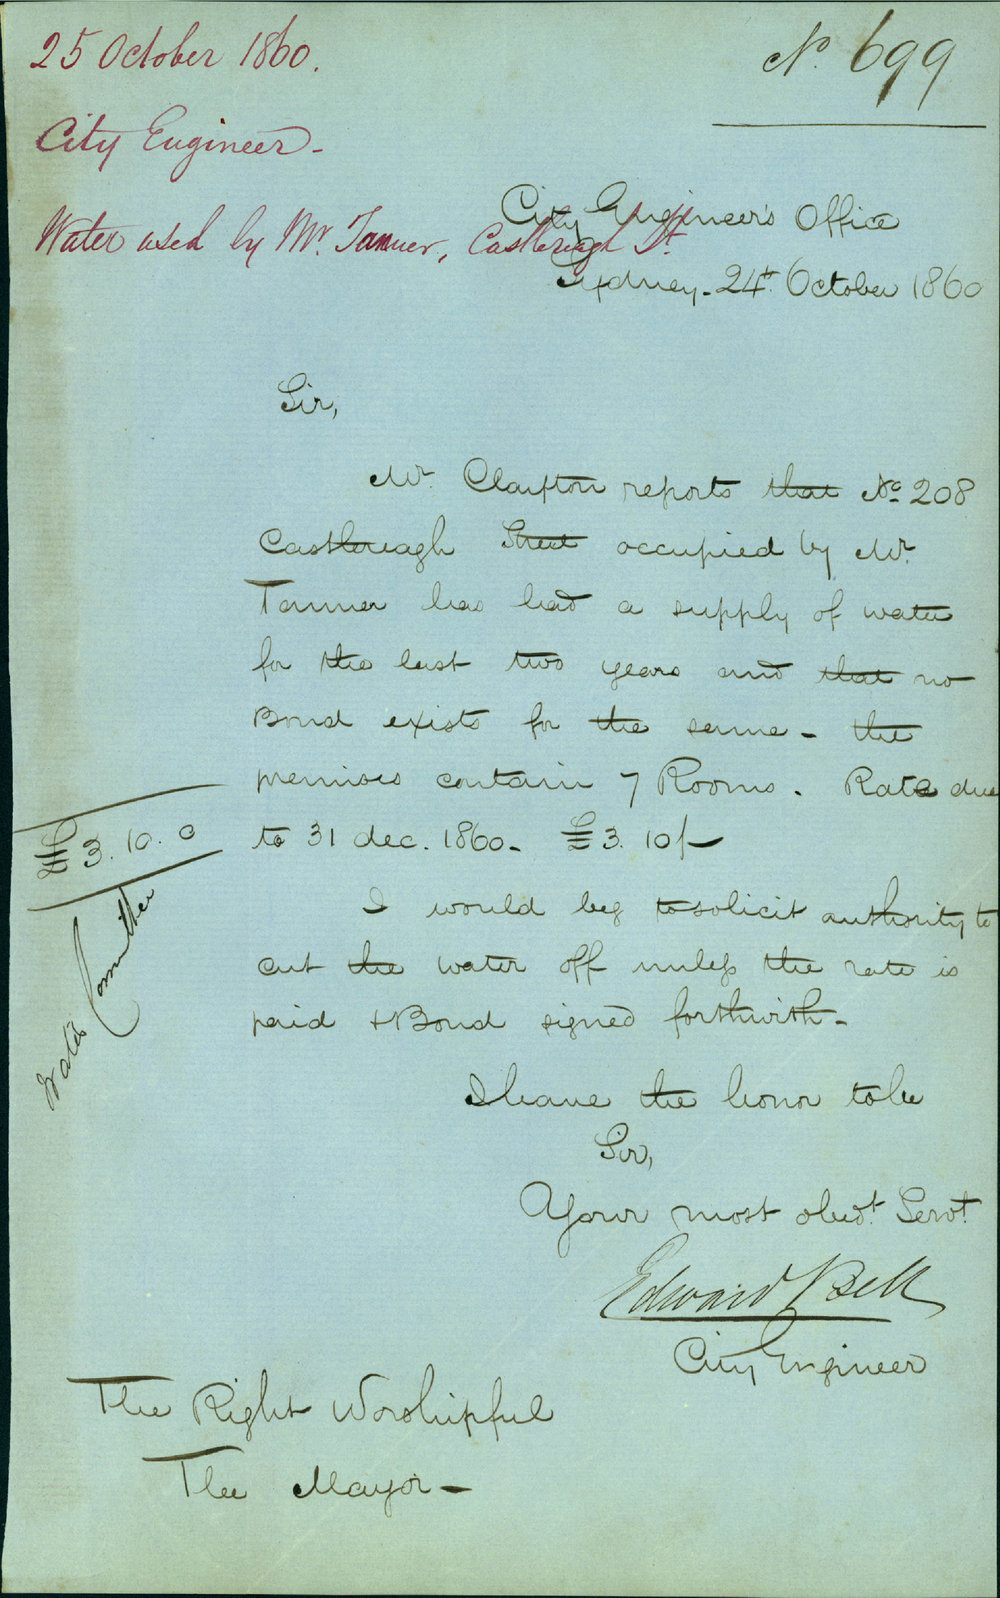 25 October 1860.
No. 699
City Engineer -
Water used by Mr. Tanner, Castlereagh St.
City Engineer's Office
Sydney. 24th. October 1860
Sir,
Mr. Clayton reports that No. 208
Castlereagh Street occupied by Mr.
Tanner has had a supply of water
for the last two years and that no
Bond exists for the same - the
premises contain 7 Rooms. Rate due
to 31 dec. 1860 - £3. 10/-
£3. 10. 0
Water Committee
I would beg to solicit authority to
cut the water off unless the rate is
paid & Bond signed forthwith -
I have the honor to be
Sir,
Your most obedt. Servt.
Edward Bell
City Engineer
The Right Worshipful
The Mayor -